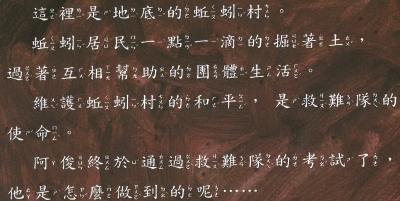 這裡是地底的蚯蚓村。
蚯蚓居民一點一滴的掘著土，
過著互相幫助的團體生活。
維護蚯蚓村的和平，是救難隊的
使命。
阿俊終於通過救難隊的考試了，
他是怎麼做到的呢……